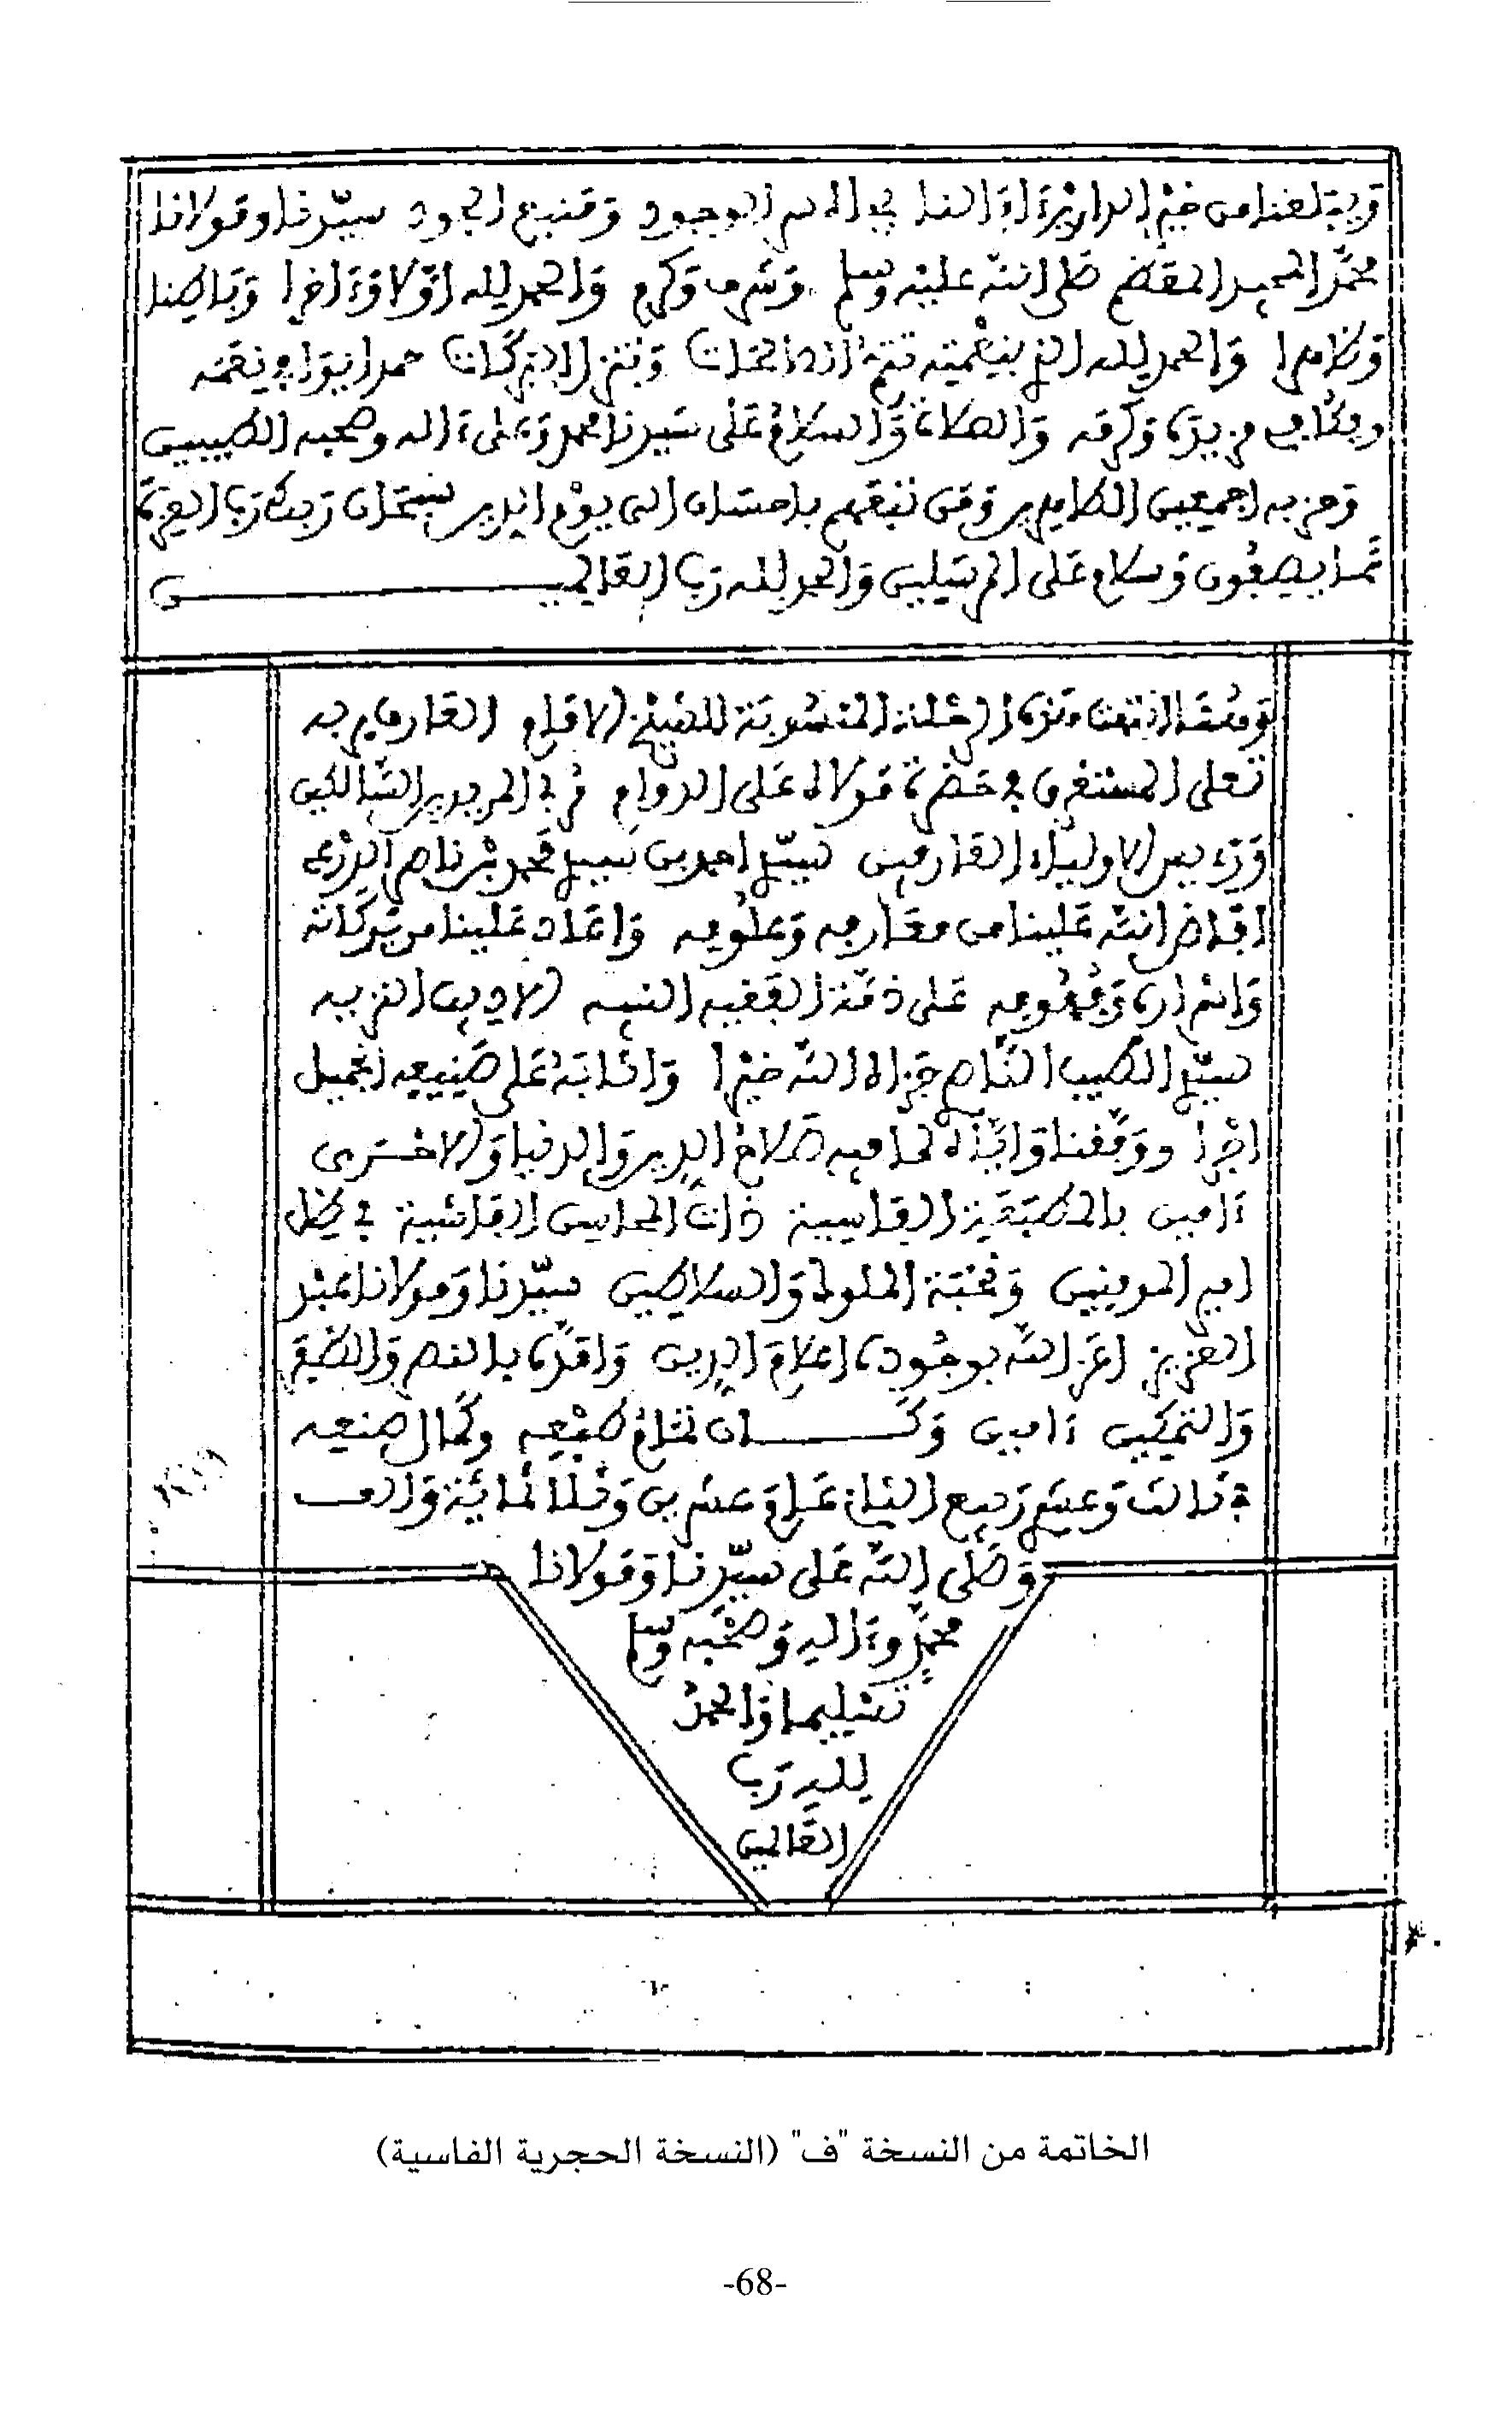 وبلغنا من خير الدارين ءامالنا بجاه الوجود ومنبع الجود سيدنا ومولانا
محمد الممجد المعظم صلى الله عليه وسلم وشرف وكرم والحمد لله أولا وءاخرا وباطنا
وظاهرا والحمد لله الذي بنعمته تتم الصالحات وتتنزل البركات حمدا يوافي نعمه
ويكافي مزيده وكرمه والصلاة والسلام على سيدنا محمد وعلى ءاله وصحبه الطيبين
وحزبه اجمعين الطاهرين ومن تبعهم بإحسان إلى يوم الدين سبحان ربك رب العزة
عما يصفون وسلام على المرسلين والحمد لله رب العالمين
انتهت هذه الرحلة المنسوبة للشيخ الامام العارف بربه
تعلى المستغرق في حضرة مولاه على الدوام مربي المريدين السالكين
ورءيس الاولياء العارفين سيدي احمد بن سيدي محمد بن ناصر الدرعي
افاض الله علينا من معارفه وعلومه واعاد علينا من بركاته
واسراره وفهومه على ذمة الفقيه النبيه الاديب النزيه
سيدي الطيب جزاه الله خيرا واثابه على صنيعه الجميل
اجرا ووفقنا واياه لما فيه صلاح الدين والدنيا والاخرى
ءامين بالمطبعة الفاسية ذات المحاسن الفاشية في ظل
امير المومنين ونخبة الملوك والسلاطين سيدنا ومولانا عبد
العزيز اعز الله بوجوده اعلام الدين وامده بالنصر والظفر
والتمكين ءامين وكان تمام طبعه وكمال صنعه
في ثالث وعشر ربيع الثاني عام عشرين وثلاثمائة والف
وصلى الله على سيدنا ومولانا
محمد وءاله وصحبه وسلم
تسليما والحمد
لله رب
العالمين
الخاتمة من النسخة "ف" (النسخة الحجرية الفاسية)
-68-